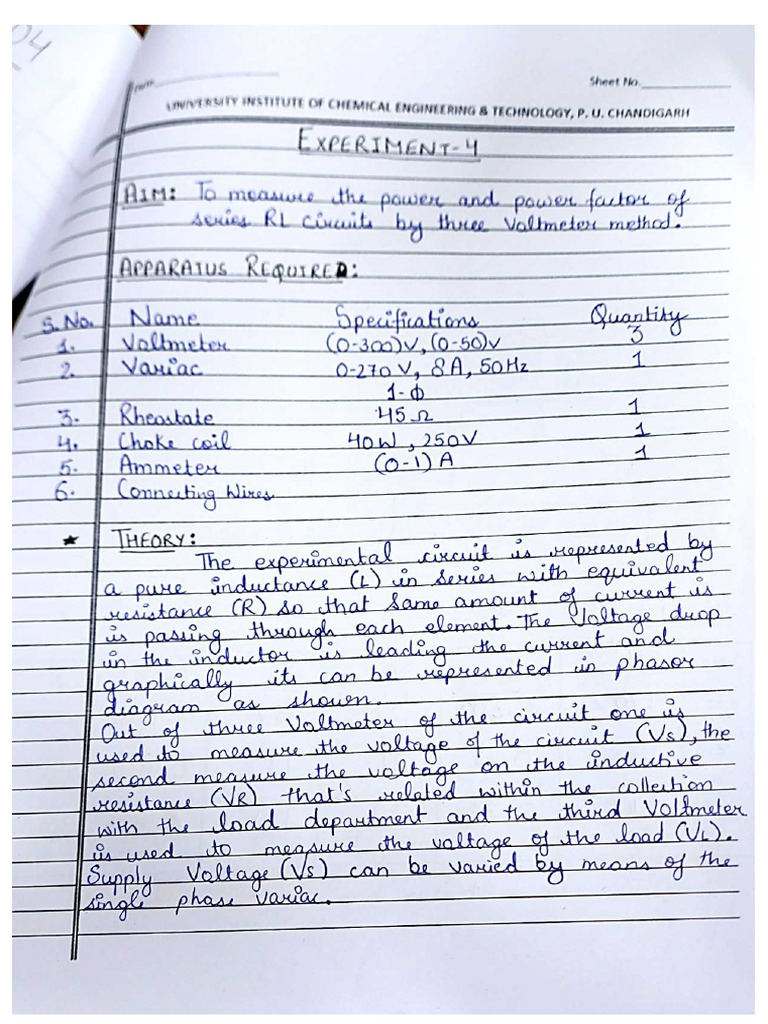 04
Sheet No.
UNIVERSITY INSTITUTE OF CHEMICAL ENGINEERING & TECHNOLOGY, P. U. CHANDIGARH
EXPERIMENT-4
AIM: To measure the power and power factor of
series RL circuits by three Voltmeter method.
APPARATUS REQUIRED:
S. No. Name Specifications Quantity
1. Voltmeter (0-300)V, (0-50)V 3
2. Variac 0-270 V, 8A, 50Hz 1
1-Φ
3. Rheostate 45 Ω 1
4. Choke coil 40W, 250V 1
5. Ammeter (0-1) A 1
6. Connecting Wires
* THEORY:
The experimental circuit is represented by
a pure inductance (L) in series with equivalent
resistance (R) so that same amount of current is
is passing through each element. The Voltage drop
in the inductor is leading the current and
graphically its can be represented in phasor
diagram as shown.
Out of three Voltmeter of the circuit one is
used to measure the voltage of the circuit (Vs), the
second measure the voltage on the inductive
resistance (VR) that's related within the collection
with the load department and the third Voltmeter
is used to measure the voltage of the load (VL).
Supply Voltage (Vs) can be varied by means of the
single phase variac.